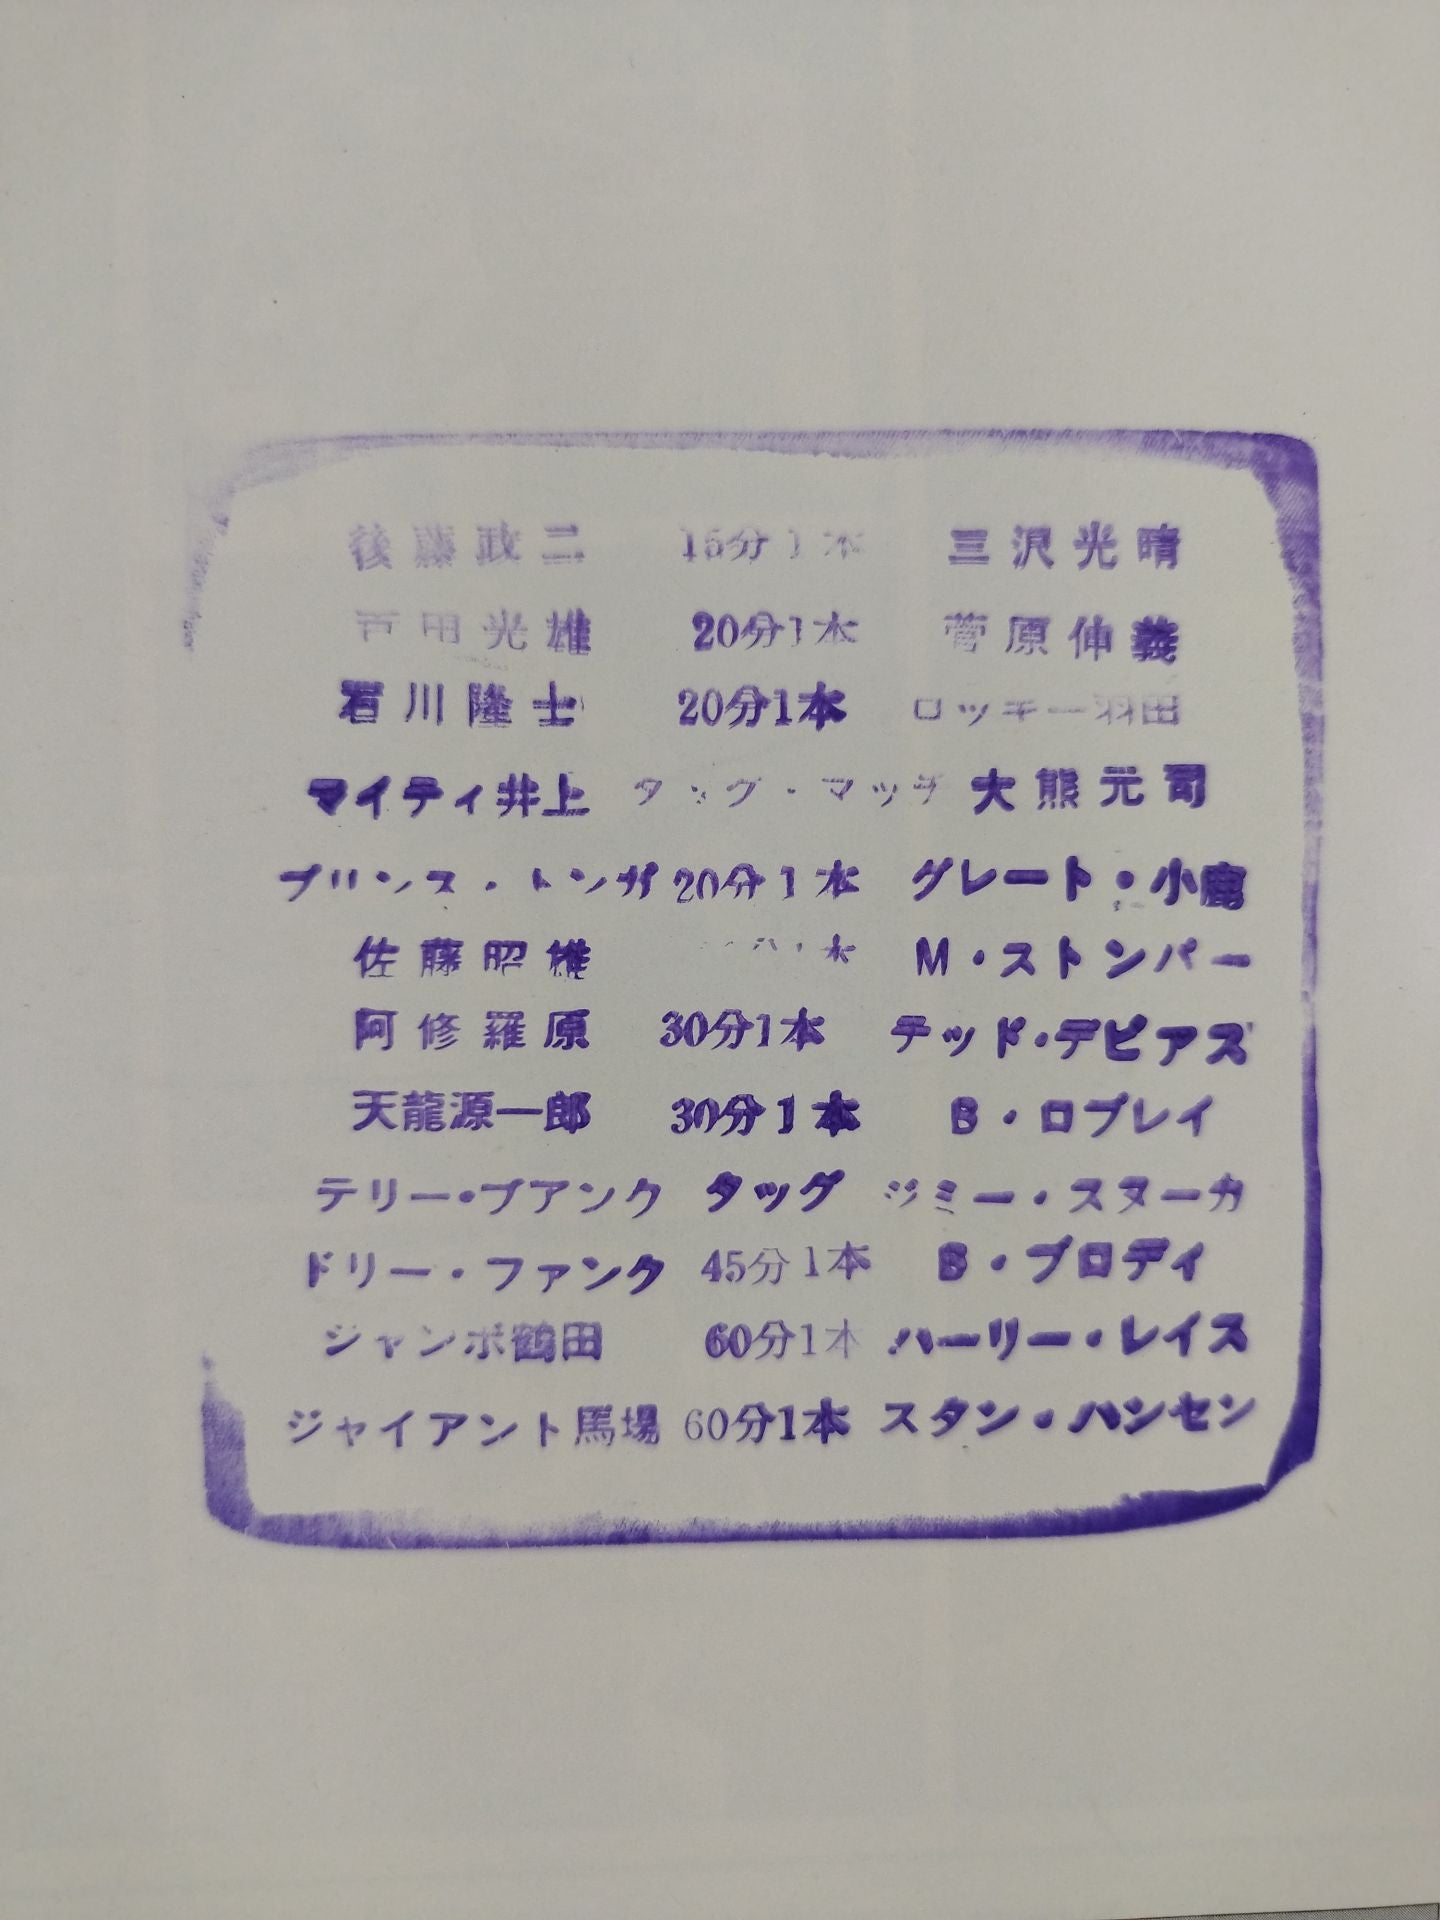 後藤政二 15分1本 三沢光晴
戸田光雄 20分1本 菅原伸義
石川隆士 20分1本 ロッキー羽田
マイティ井上 タッグ・マッチ 大熊元司
プリンス・トンガ 20分1本 グレート・小鹿
佐藤昭雄 M・ストンパー
阿修羅原 30分1本 テッド・デビアス
天龍源一郎 30分1本 B・ロブレイ
テリー・ブアンク タッグ ジミー・スヌーカ
ドリー・ファンク 45分1本 B・ブロディ
ジャンボ鶴田 60分1本 ハーリー・レイス
ジャイアント馬場 60分1本 スタン・ハンセン